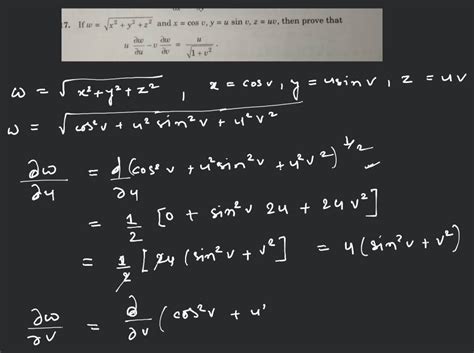 7. If w = √x² + y² + z² and x = cos v, y = u sin v, z = uv, then prove that
u ∂w/∂u − v ∂w/∂v = u/√1 + v².
ω = √x²+y²+z² , x = cosv, y = usinv, z = uv
ω = √cos²v + u² sin²v + u²v²
∂ω/∂u = d/∂u (cos²v + u²sin²v + u²v²)^1/2
= 1/2 [0 + sin²v 2u + 2u v²]
= 1/2 [2u (sin²v + v²] = u (sin²v + v²)
∂ω/∂v = ∂/∂v (cos²v + u'